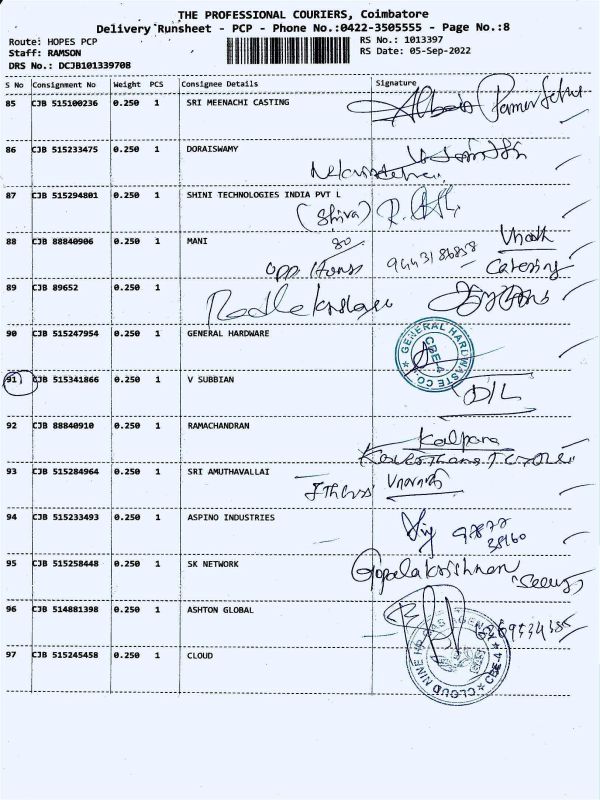 THE PROFESSIONAL COURIERS, Coimbatore
Delivery Runsheet - PCP - Phone No.:0422-3505555 - Page No.:8
Route: HOPES PCP RS No.: 1013397
Staff: RAMSON RS Date: 05-Sep-2022
DRS No.: DCJB10133970B
S No Consignment No Weight PCS Consignee Details Signature
85 CJB 515100236 0.250 1 SRI MEENACHI CASTING
86 CJB 515233475 0.250 1 DORAISWAMY
87 CJB 515294801 0.250 1 SHINI TECHNOLOGIES INDIA PVT L
(Shiva)
88 CJB 88840906 0.250 1 MANI
80
opp House Catering
89 CJB 89652 0.250 1
90 CJB 515247954 0.250 1 GENERAL HARDWARE
GENERAL HARDWASTE CO. CBE-4
91 CJB 515341866 0.250 1 V SUBBIAN
D/L
92 CJB 88840910 0.250 1 RAMACHANDRAN
Kalpana
93 CJB 515284964 0.250 1 SRI AMUTHAVALLAI
94 CJB 515233493 0.250 1 ASPINO INDUSTRIES
95 CJB 515258448 0.250 1 SK NETWORK
Gopalakrishnan
96 CJB 514881398 0.250 1 ASHTON GLOBAL
97 CJB 515245458 0.250 1 CLOUD
CLOUD NINE HP GAS AGENCY CBE-4